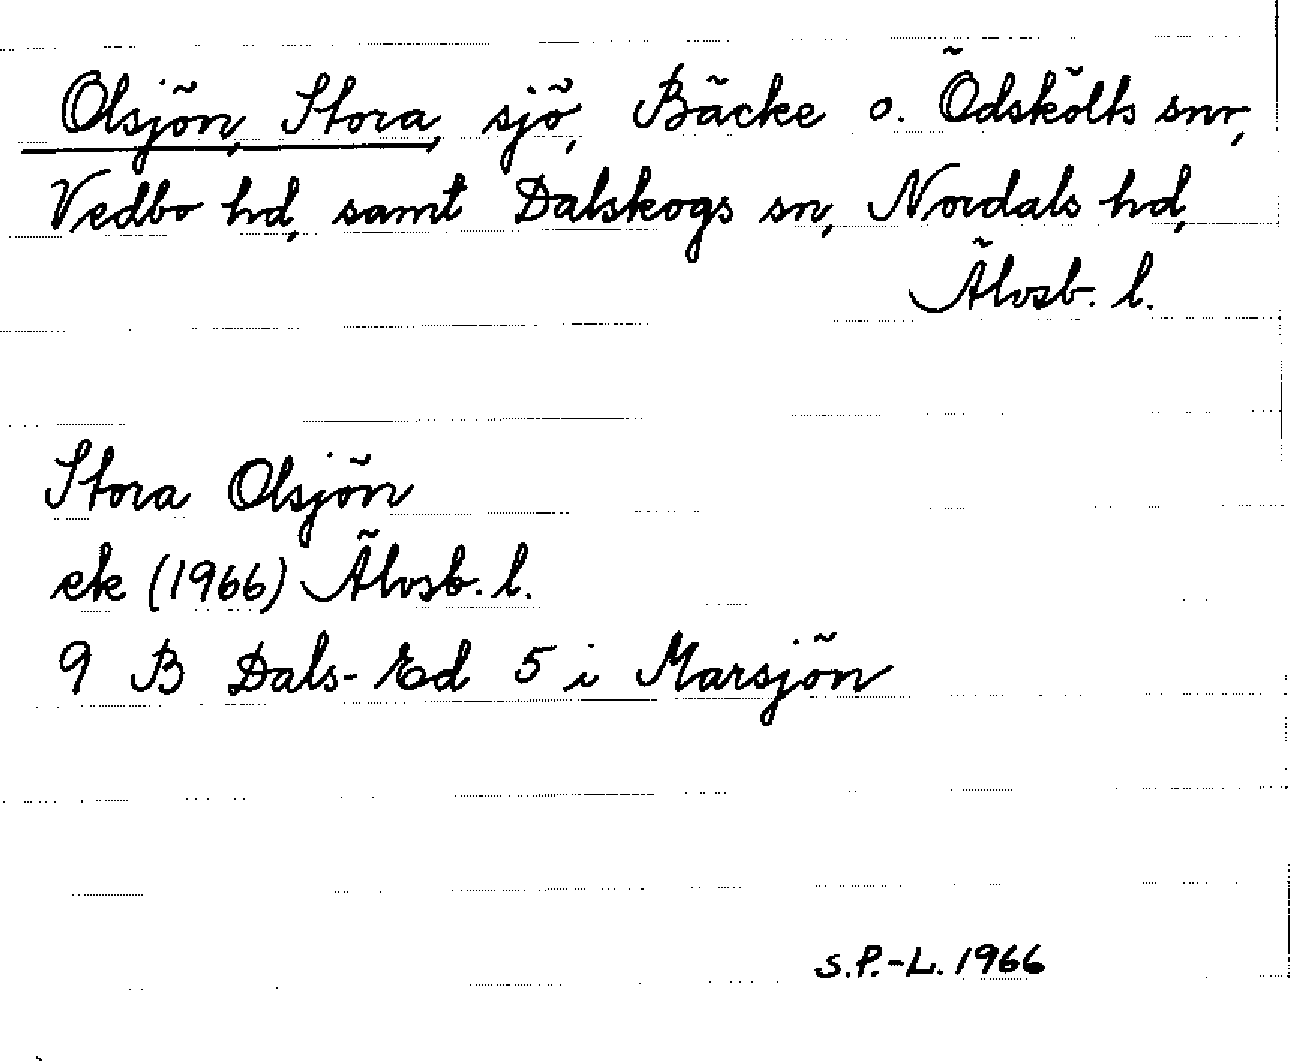 Olsjön, Stora, sjö, Bäcke o. Ödskölts snr,
Vedbo hd, samt Dalskogs sn, Nordals hd,
Älvsb. l.
Stora Olsjön
ek (1966) Älvsb. l.
9 B Dals-Ed 5 i Marsjön
S.P.-L. 1966